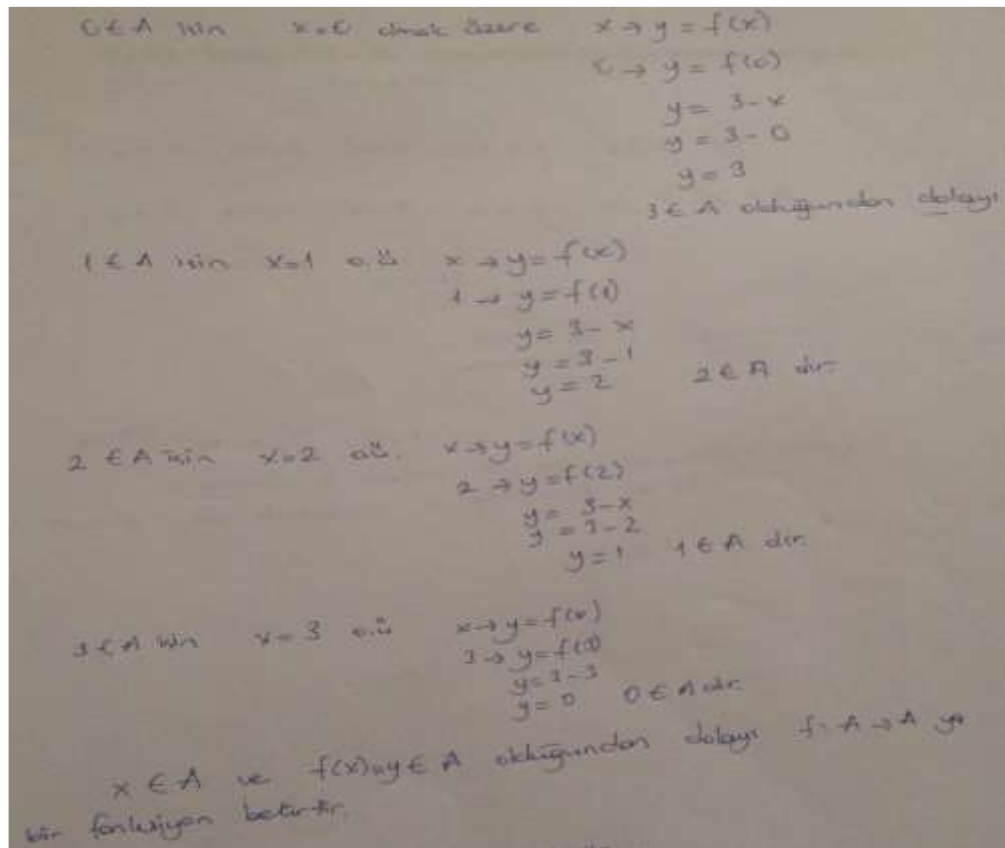 0 ∈ A için x=0 olmak üzere x → y = f(x)
0 → y = f(0)
y = 3-x
y = 3-0
y = 3
3 ∈ A olduğundan dolayı
1 ∈ A için x=1 o.ü x → y = f(x)
1 → y = f(1)
y = 3-x
y = 3-1
y = 2 2 ∈ A dır.
2 ∈ A için x=2 o.ü. x → y = f(x)
2 → y = f(2)
y = 3-x
y = 3-2
y = 1 1 ∈ A dır.
3 ∈ A için x=3 o.ü x → y = f(x)
3 → y = f(3)
y = 3-3
y = 0 0 ∈ A dır.
x ∈ A ve f(x)=y ∈ A olduğundan dolayı f: A → A ya
bir fonksiyon belirtir.